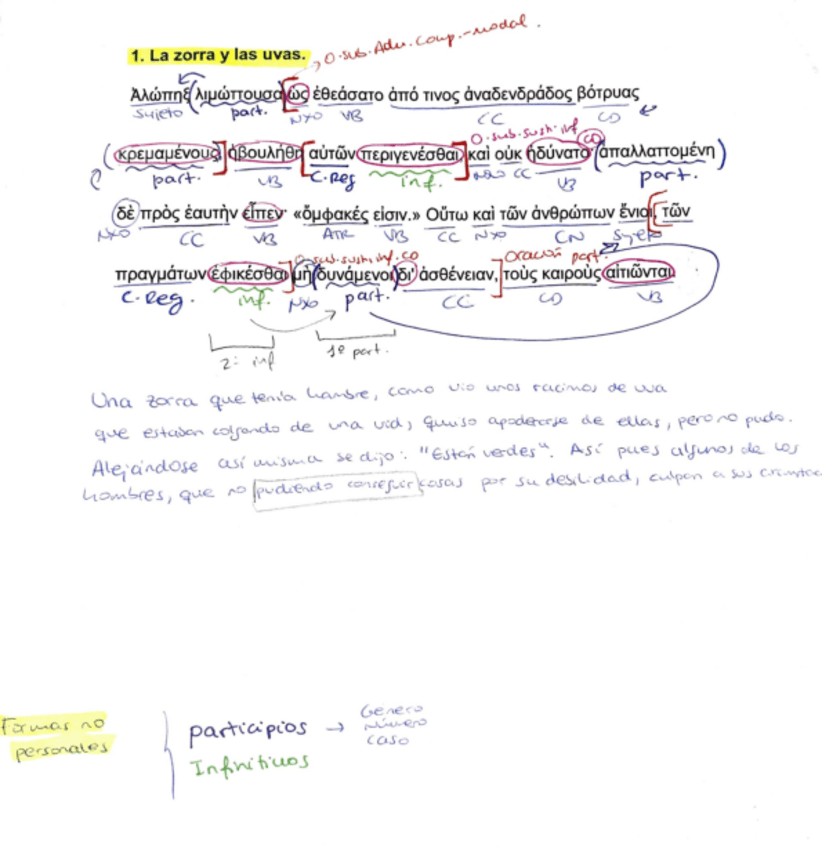 O. sub. Adv. Comp.-modal.
1. La zorra y las uvas.
Ἀλώπηξ λιμώττουσα, ὡς ἐθεάσατο ἀπό τινος ἀναδενδράδος βότρυας
Sujeto part. NXO VB CC CD
O. sub. sust. inf. CD
κρεμαμένους, ἠβουλήθη αὐτῶν περιγενέσθαι καὶ οὐκ ἠδύνατο· ἀπαλλαττομένη
part. VB C.Reg inf. NXO CC VB part.
δὲ πρὸς ἑαυτὴν εἶπεν· «ὄμφακές εἰσιν.» Οὕτω καὶ τῶν ἀνθρώπων ἔνιοι, τῶν
NXO CC VB ATR VB CC NXO CN Sujeto
O. sub. sust. inf. CD Oración part.
πραγμάτων ἐφικέσθαι μὴ δυνάμενοι δι' ἀσθένειαν, τοὺς καιροὺς αἰτιῶνται.
C. Reg. inf. NXO part. CC CD VB
2º inf 1º part.
Una zorra que tenía hambre, como vio unos racimos de uva
que estaban colgando de una vid, quiso apoderarse de ellas, pero no pudo.
Alejándose así misma se dijo: "Están verdes". Así pues algunos de los
hombres, que no pudiendo conseguir cosas por su debilidad, culpan a sus
Genero
Formas no participios → Número
personales caso
Infinitivos